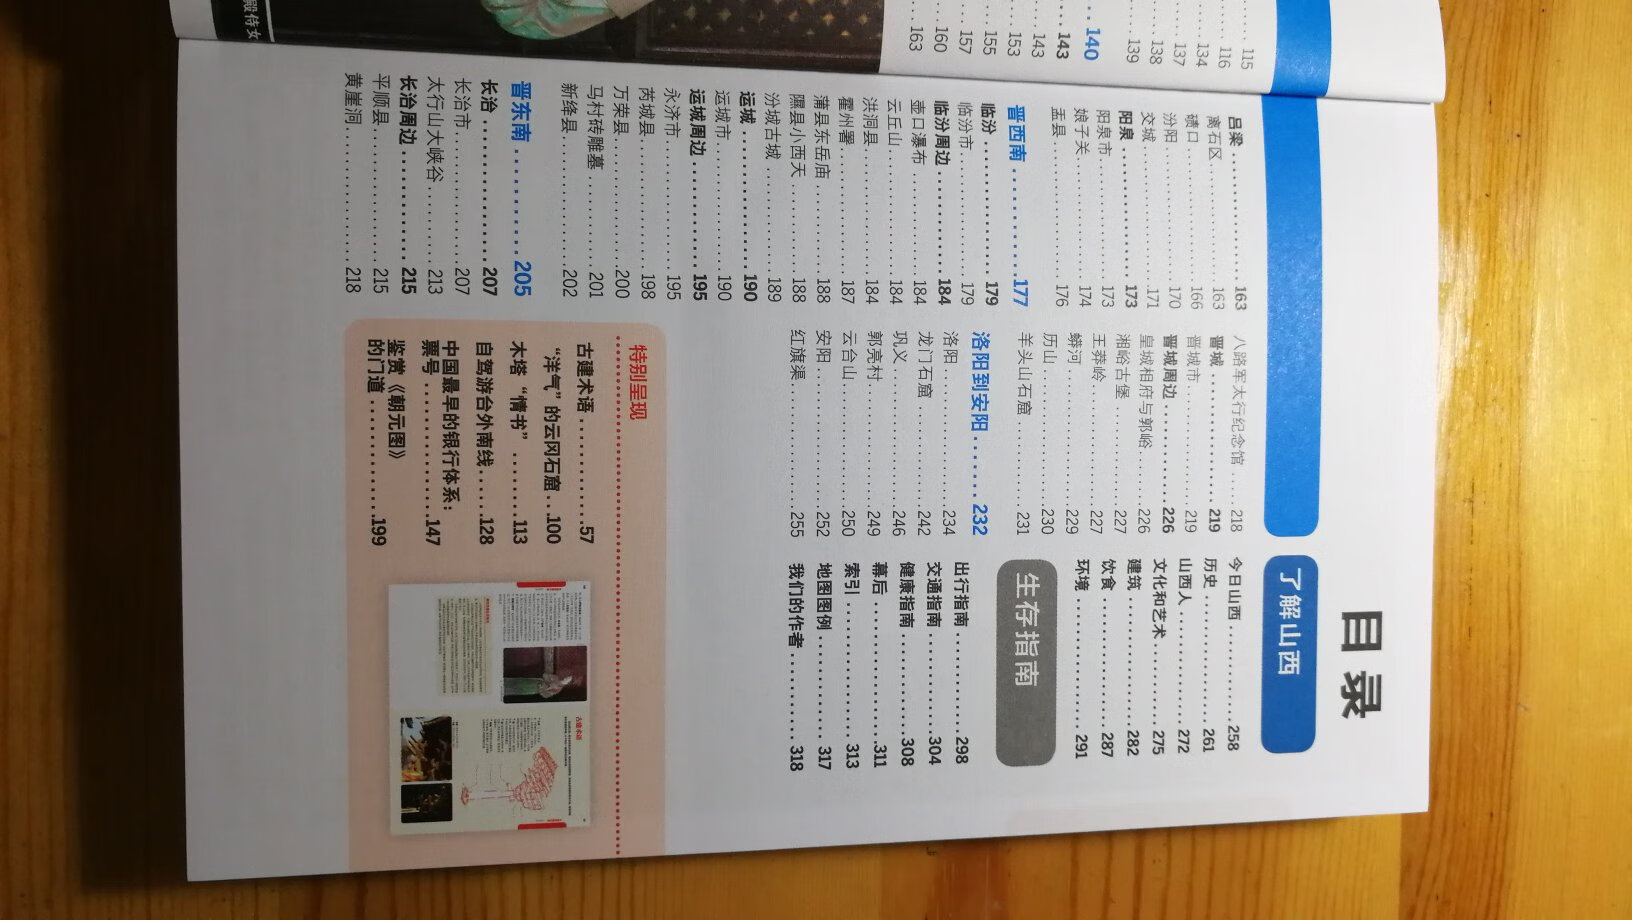 目录
吕梁............163
离石区............163
碛口............166
汾阳............170
交城............171
阳泉............173
阳泉市............173
娘子关............174
盂县............176
晋西南............177
临汾............179
临汾市............179
临汾周边............184
壶口瀑布............184
云丘山............184
洪洞县............184
霍州署............187
蒲县东岳庙............188
隰县小西天............188
汾城古城............189
运城............190
运城市............190
运城周边............195
永济市............195
芮城县............198
万荣县............200
马村砖雕墓............201
新绛县............202
晋东南............205
长治............207
长治市............207
太行山大峡谷............213
长治周边............215
平顺县............215
黄崖洞............218
八路军太行纪念馆......218
晋城............219
晋城市............219
晋城周边............226
皇城相府与郭峪......226
湘峪古堡............227
王莽岭............227
蟒河............229
历山............230
羊头山石窟............231
洛阳到安阳............232
洛阳............234
龙门石窟............242
巩义............246
郭亮村............249
云台山............250
安阳............252
红旗渠............255
了解山西
今日山西............258
历史............261
山西人............272
文化和艺术............275
建筑............282
饮食............287
环境............291
生存指南
出行指南............298
交通指南............304
健康指南............308
幕后............311
索引............313
地图图例............317
我们的作者............318
特别呈现
古建术语............57
“洋气”的云冈石窟...100
木塔“情书”......113
自驾游台外南线......128
中国最早的银行体系：
票号............147
鉴赏《朝元图》
的门道............199
115
116
134
137
138
139
140
143
143
153
155
157
160
163
殿侍女
古建术语